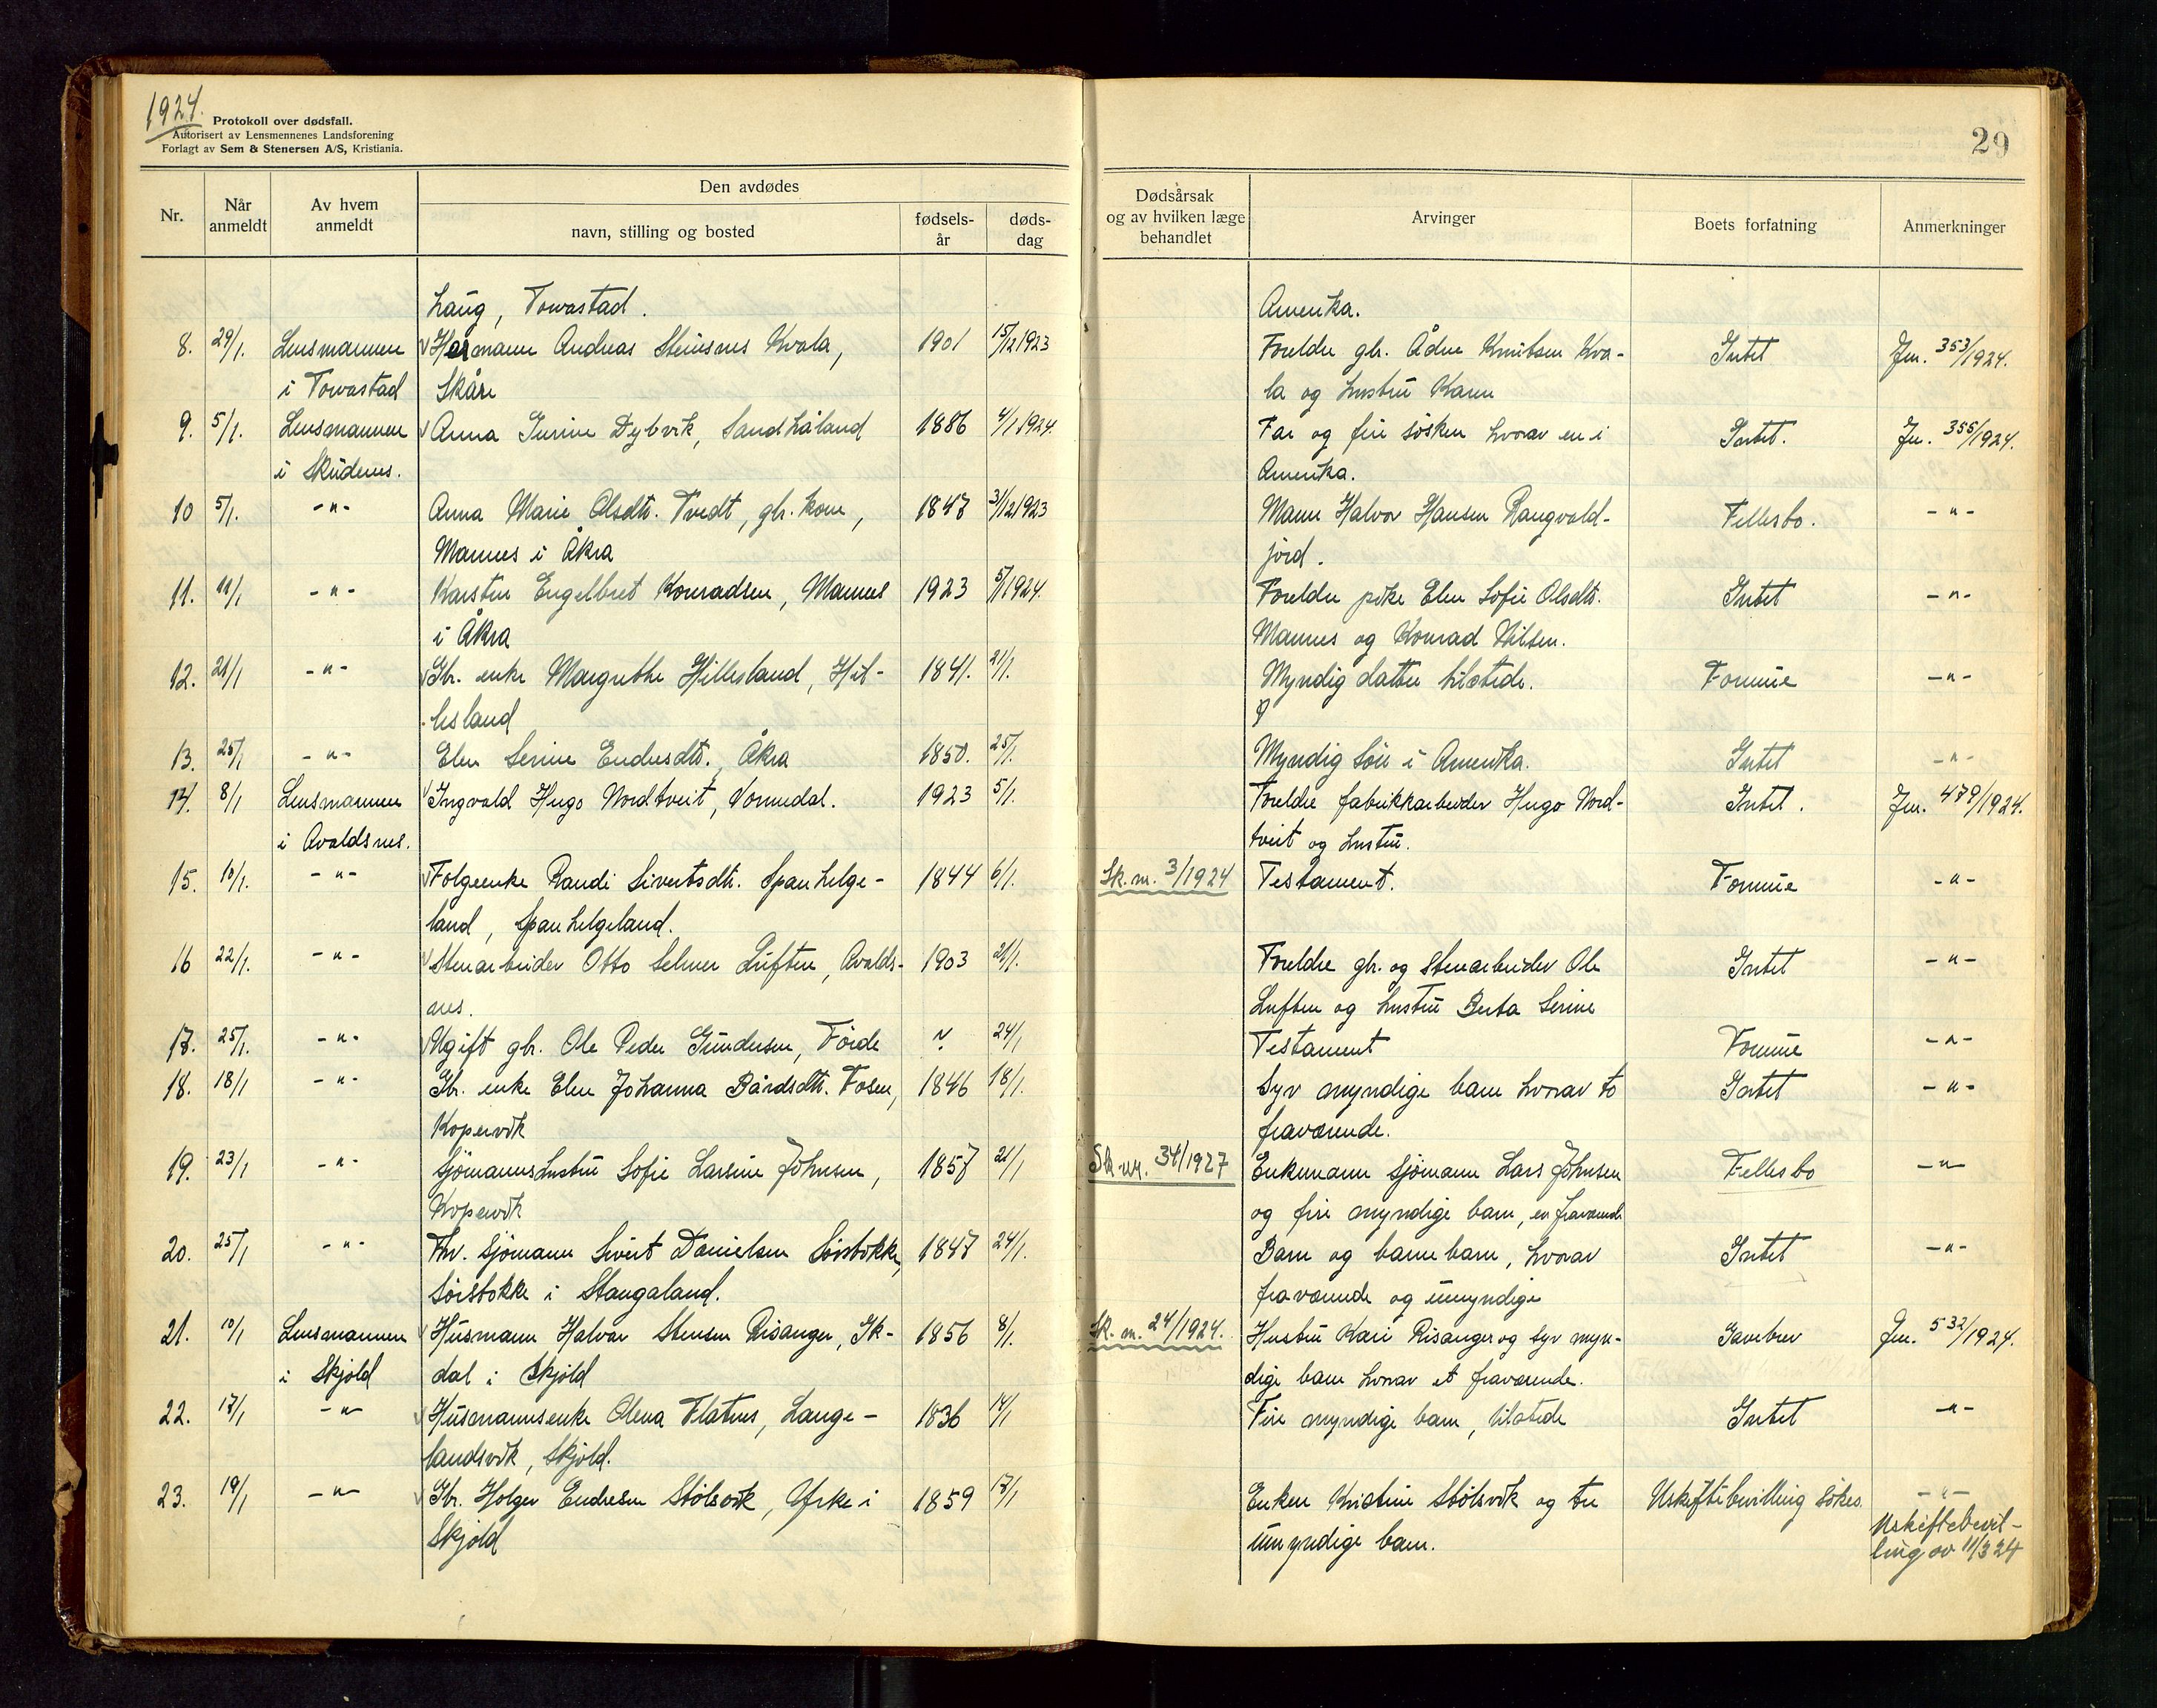 1924.
Protokoll over dødsfall.
Autorisert av Lensmennenes Landsforening
Forlagt av Sem & Stenersen A/S, Kristiania.
29
Nr.
Når anmeldt
Av hvem anmeldt
Den avdødes
navn, stilling og bosted
fødsels-år
døds-dag
Dødsårsak og av hvilken læge behandlet
Arvinger
Boets forfatning
Anmerkninger
haug, Torvastad. Amerika.
8. 29/1. Lensmannen Hermann Andreas Steinsnes Kvala, 1901 15/12 1923 Foreldre gbr. Ådne Knutsen Kva- Intet Jnr. 353/1924.
i Torvastad Skåre la og hustru Karen
9. 5/1. Lensmannen Anna Gurine Dybvik, Sandhåland 1886 4/1 1924 Far og fire søsken hvorav en i Intet. Jnr. 355/1924.
i Skudenes. Amerika.
10 5/1. -"- Anna Marie Olsdtr. Tvedt, gbr. kone, 1847 31/12 1923 Mann Halvor Hansen Rangvald- Fellesbo. -"-
Mannes i Åkra jord.
11. 11/1 -"- Karsten Engelbret Konradsen, Mannes 1923 5/1 1924. Foreldre pike Elen Sofie Olsdtr. Intet -"-
i Åkra Mannes og Konrad Nilsen.
12. 21/1 -"- Gbr. enke Margrethe Hillesland, Hil- 1841. 21/1. Myndig datter tilstede. Formue -"-
lesland
13. 25/1 -"- Elen Serine Endresdtr., Åkra 1850. 25/1. Myndig sön i Amerika. Intet -"-
14. 8/1 Lensmannen Ingvald Hugo Nordtveit, Vormedal. 1923 5/1. Foreldre fabrikkarbeider Hugo Nord- Intet. Jnr. 479/1924.
i Avaldsnes. tveit og hustru.
15. 10/1. -"- Folgeenke Randi Sivertsdtr. Spanhelge- 1844 6/1. Sk. nr. 3/1924 Testament. Formue -"-
land, Spanhelgeland.
16 22/1. -"- Stenarbeider Otto Selmer Luften, Avalds- 1903 21/1. Foreldre gbr. og Stenarbeider Ole Intet -"-
nes. Luften og hustru Berta Serine
17. 25/1. -"- Ugift gbr. Ole Peder Gundersen, Förde 24/1 Testament Formue -"-
18. 18/1 -"- Gbr. enke Elen Johanna Bårdsdtr. Fosen, 1846 18/1. Syv myndige barn hvorav to Intet -"-
Kopervik fraværende.
19. 23/1 -"- Sjömannshustru Sofie Larsine Johnsen, 1857 21/1 Sk. nr. 34/1927 Enkemann sjömann Lars Johnsen Fellesbo -"-
Kopervik og fire myndige barn, en fraværende
20. 25/1 -"- Fhv. sjömann Sivert Danielsen Sörstokke, 1847 24/1. Barn og barnebarn, hvorav Intet -"-
Sörstokke i Stangaland. fraværende og umyndige
21. 10/1 Lensmannen Husmann Halvar Stensen Risanger, Ik- 1856 8/1. Sk. nr. 24/1924. Hustru Kari Risanger og syv myn- Gavebrev Jnr. 532/1924.
i Skjold dal i Skjold dige barn hvorav et fraværende.
22. 17/1 -"- Husmannsenke Olena Flatnes, Lange- 1836 14/1 Fire myndige barn, tilstede Intet -"-
landsvik, Skjold.
23. 19/1 -"- Gbr. Holger Endresen Stölsvik, Yrke i 1859 17/1 Enken Kristine Stölsvik og tre Uskiftebevilling sökes. -"-
Skjold umyndige barn. Uskiftebevil-
ling av 11/3 24